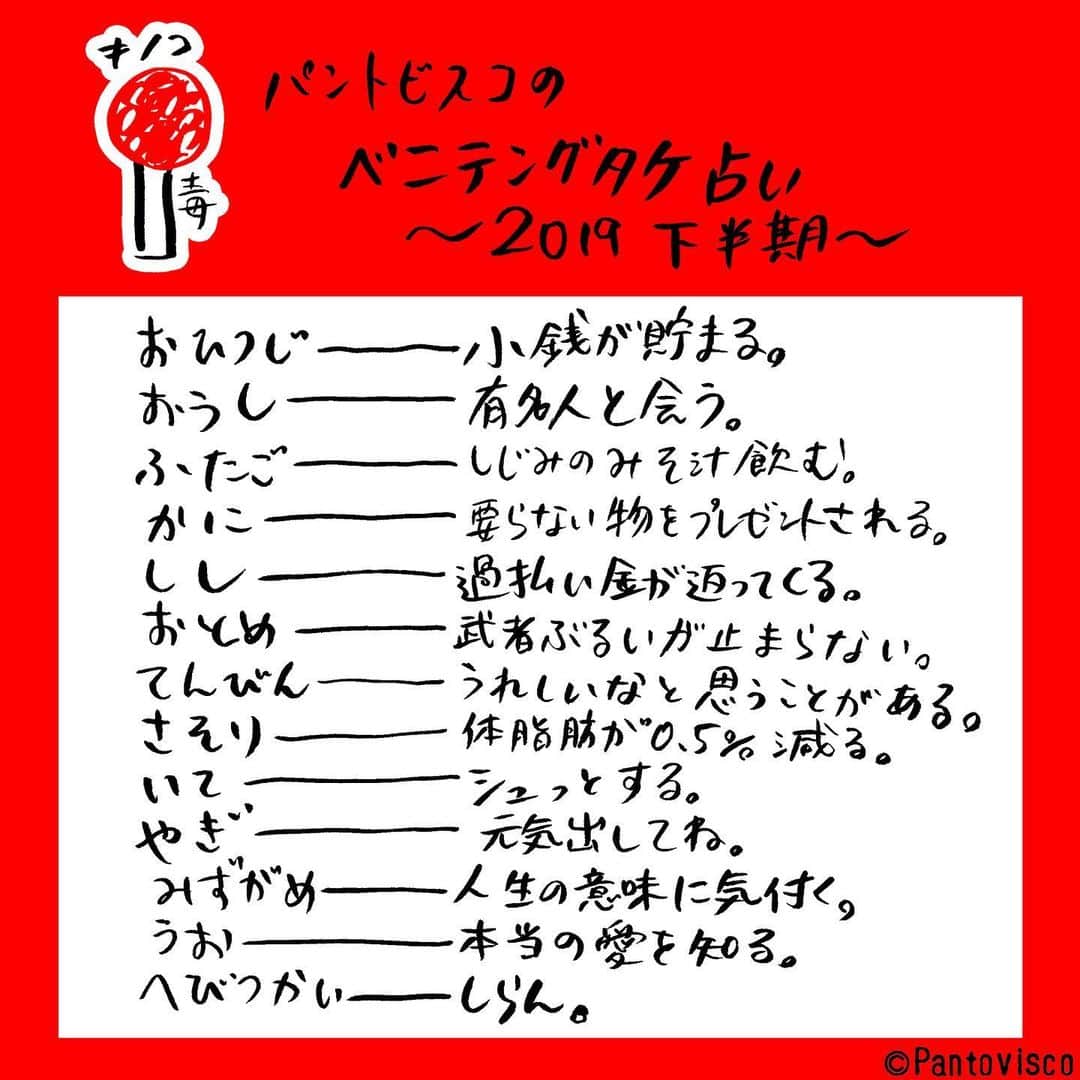 キノコ
毒
パントビスコの
ベニテングタケ占い
〜2019 下半期〜
おひつじ——小銭が貯まる。
おうし——有名人と会う。
ふたご——しじみのみそ汁飲む!。
かに——要らない物をプレゼントされる。
しし——過払い金が返ってくる。
おとめ——武者ぶるいが止まらない。
てんびん——うれしいなと思うことがある。
さそり——体脂肪が0.5%減る。
いて——シュっとする。
やぎ——元気出してね。
みずがめ——人生の意味に気付く。
うお——本当の愛を知る。
へびつかい——しらん。
©Pantovisco